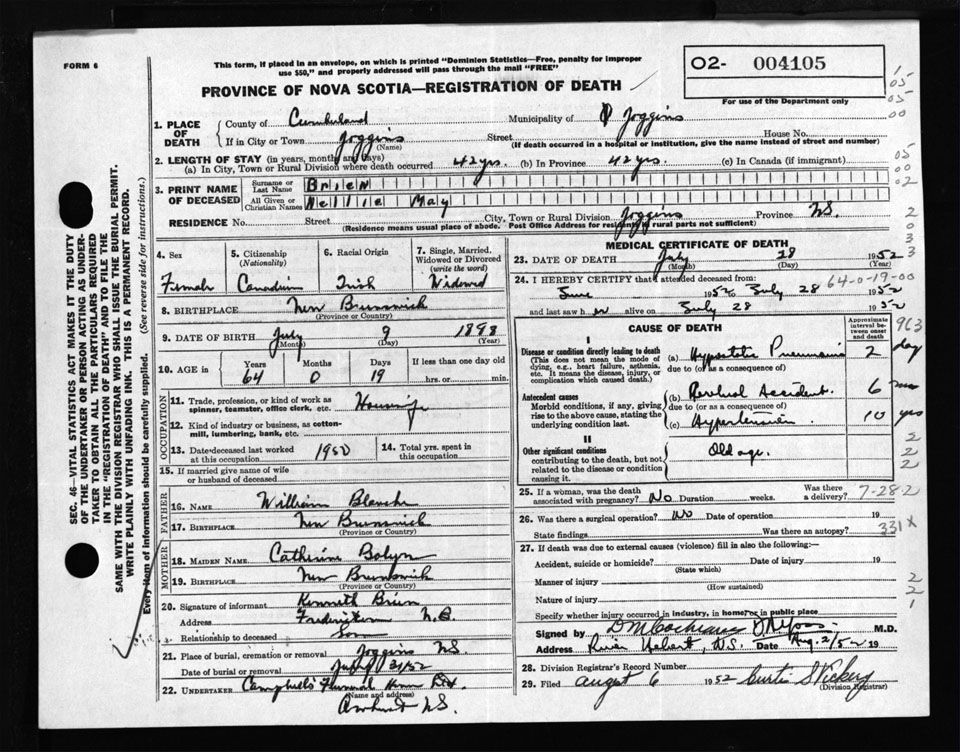 FORM 6
This form, if placed in an envelope, on which is printed "Dominion Statistics—Free, penalty for improper
use $50," and properly addressed will pass through the mail "FREE"
PROVINCE OF NOVA SCOTIA—REGISTRATION OF DEATH
O2- 004105
For use of the Department only
1. PLACE OF DEATH
County of Cumberland Municipality of Joggins
If in City or Town Joggins Street House No.
(Name) (If death occurred in a hospital or institution, give the name instead of street and number)
2. LENGTH OF STAY (in years, months and days)
(a) In City, Town or Rural Division where death occurred 42 yrs. (b) In Province 42 yrs. (c) In Canada (if immigrant)
3. PRINT NAME OF DECEASED
Surname or Last Name Brien
All Given or Christian Names Nellie May
RESIDENCE No. Street City, Town or Rural Division Joggins Province N.S.
(Residence means usual place of abode. Post Office Address for residence in rural parts not sufficient)
4. Sex Female
5. Citizenship (Nationality) Canadian
6. Racial Origin Irish
7. Single, Married, Widowed or Divorced (write the word) Widowed
8. BIRTHPLACE New Brunswick
(Province or Country)
9. DATE OF BIRTH July 9 1898
(Month) (Day) (Year)
10. AGE in Years Months Days If less than one day old
64 0 19 hrs. or min.
OCCUPATION
11. Trade, profession, or kind of work as
spinner, teamster, office clerk, etc. Housewife
12. Kind of industry or business, as cotton-
mill, lumbering, bank, etc.
13. Date deceased last worked at this occupation 1950
14. Total yrs. spent in this occupation
15. If married give name of wife
or husband of deceased
FATHER
16. Name William Blanche
17. Birthplace New Brunswick
(Province or Country)
MOTHER
18. MAIDEN NAME Catherine
19. BIRTHPLACE New Brunswick
(Province or Country)
20. Signature of informant Kenneth Brien
Address Fredericton N.B.
Relationship to deceased Son
21. Place of burial, cremation or removal Joggins N.S.
Date of burial or removal July 31/52
22. UNDERTAKER Campbells' Funeral Home Ltd.
(Name and address)
Amherst N.S.
MEDICAL CERTIFICATE OF DEATH
23. DATE OF DEATH July 28 1952
(Month) (Day) (Year)
24. I HEREBY CERTIFY that I attended deceased from: 64-0-19-00
June 1952 to July 28 1952
and last saw her alive on July 28 1952
CAUSE OF DEATH
Approximate interval between onset and death
963
I
Disease or condition directly leading to death (a) Hypostatic Pneumonia 2 day
(This does not mean the mode of due to (or as a consequence of)
dying, e.g., heart failure, asthenia,
etc. It means the disease, injury, or
complication which caused death.)
Antecedent causes (b) Cerebral Accident. 6
Morbid conditions, if any, giving due to (or as a consequence of)
rise to the above cause, stating the
underlying condition last. (c) Hypertension 10 yrs
II
Other significant conditions Old age.
contributing to the death, but not
related to the disease or condition
causing it.
25. If a woman, was the death Was there
associated with pregnancy? No Duration weeks. a delivery? 7-28-2
26. Was there a surgical operation? No Date of operation 19
State findings Was there an autopsy? 331X
27. If death was due to external causes (violence) fill in also the following:—
Accident, suicide or homicide? Date of injury 19
(State which)
Manner of injury
(How sustained)
Nature of injury
Specify whether injury occurred in industry, in home or in public place
Signed by D M Cochrane M.D.
Address River Hebert, N.S. Date Aug. 2/52 19
28. Division Registrar's Record Number
29. Filed August 6 1952 Curtis S Vickery
(Division Registrar)
SEC. 46—VITAL STATISTICS ACT MAKES IT THE DUTY
OF THE UNDERTAKER OR PERSON ACTING AS UNDER-
TAKER TO OBTAIN ALL THE PARTICULARS REQUIRED
IN THE "REGISTRATION OF DEATH" AND TO FILE THE
SAME WITH THE DIVISION REGISTRAR WHO SHALL ISSUE THE BURIAL PERMIT.
WRITE PLAINLY WITH UNFADING INK. THIS IS A PERMANENT RECORD.
Every item of information should be carefully supplied. (See reverse side for instructions.)